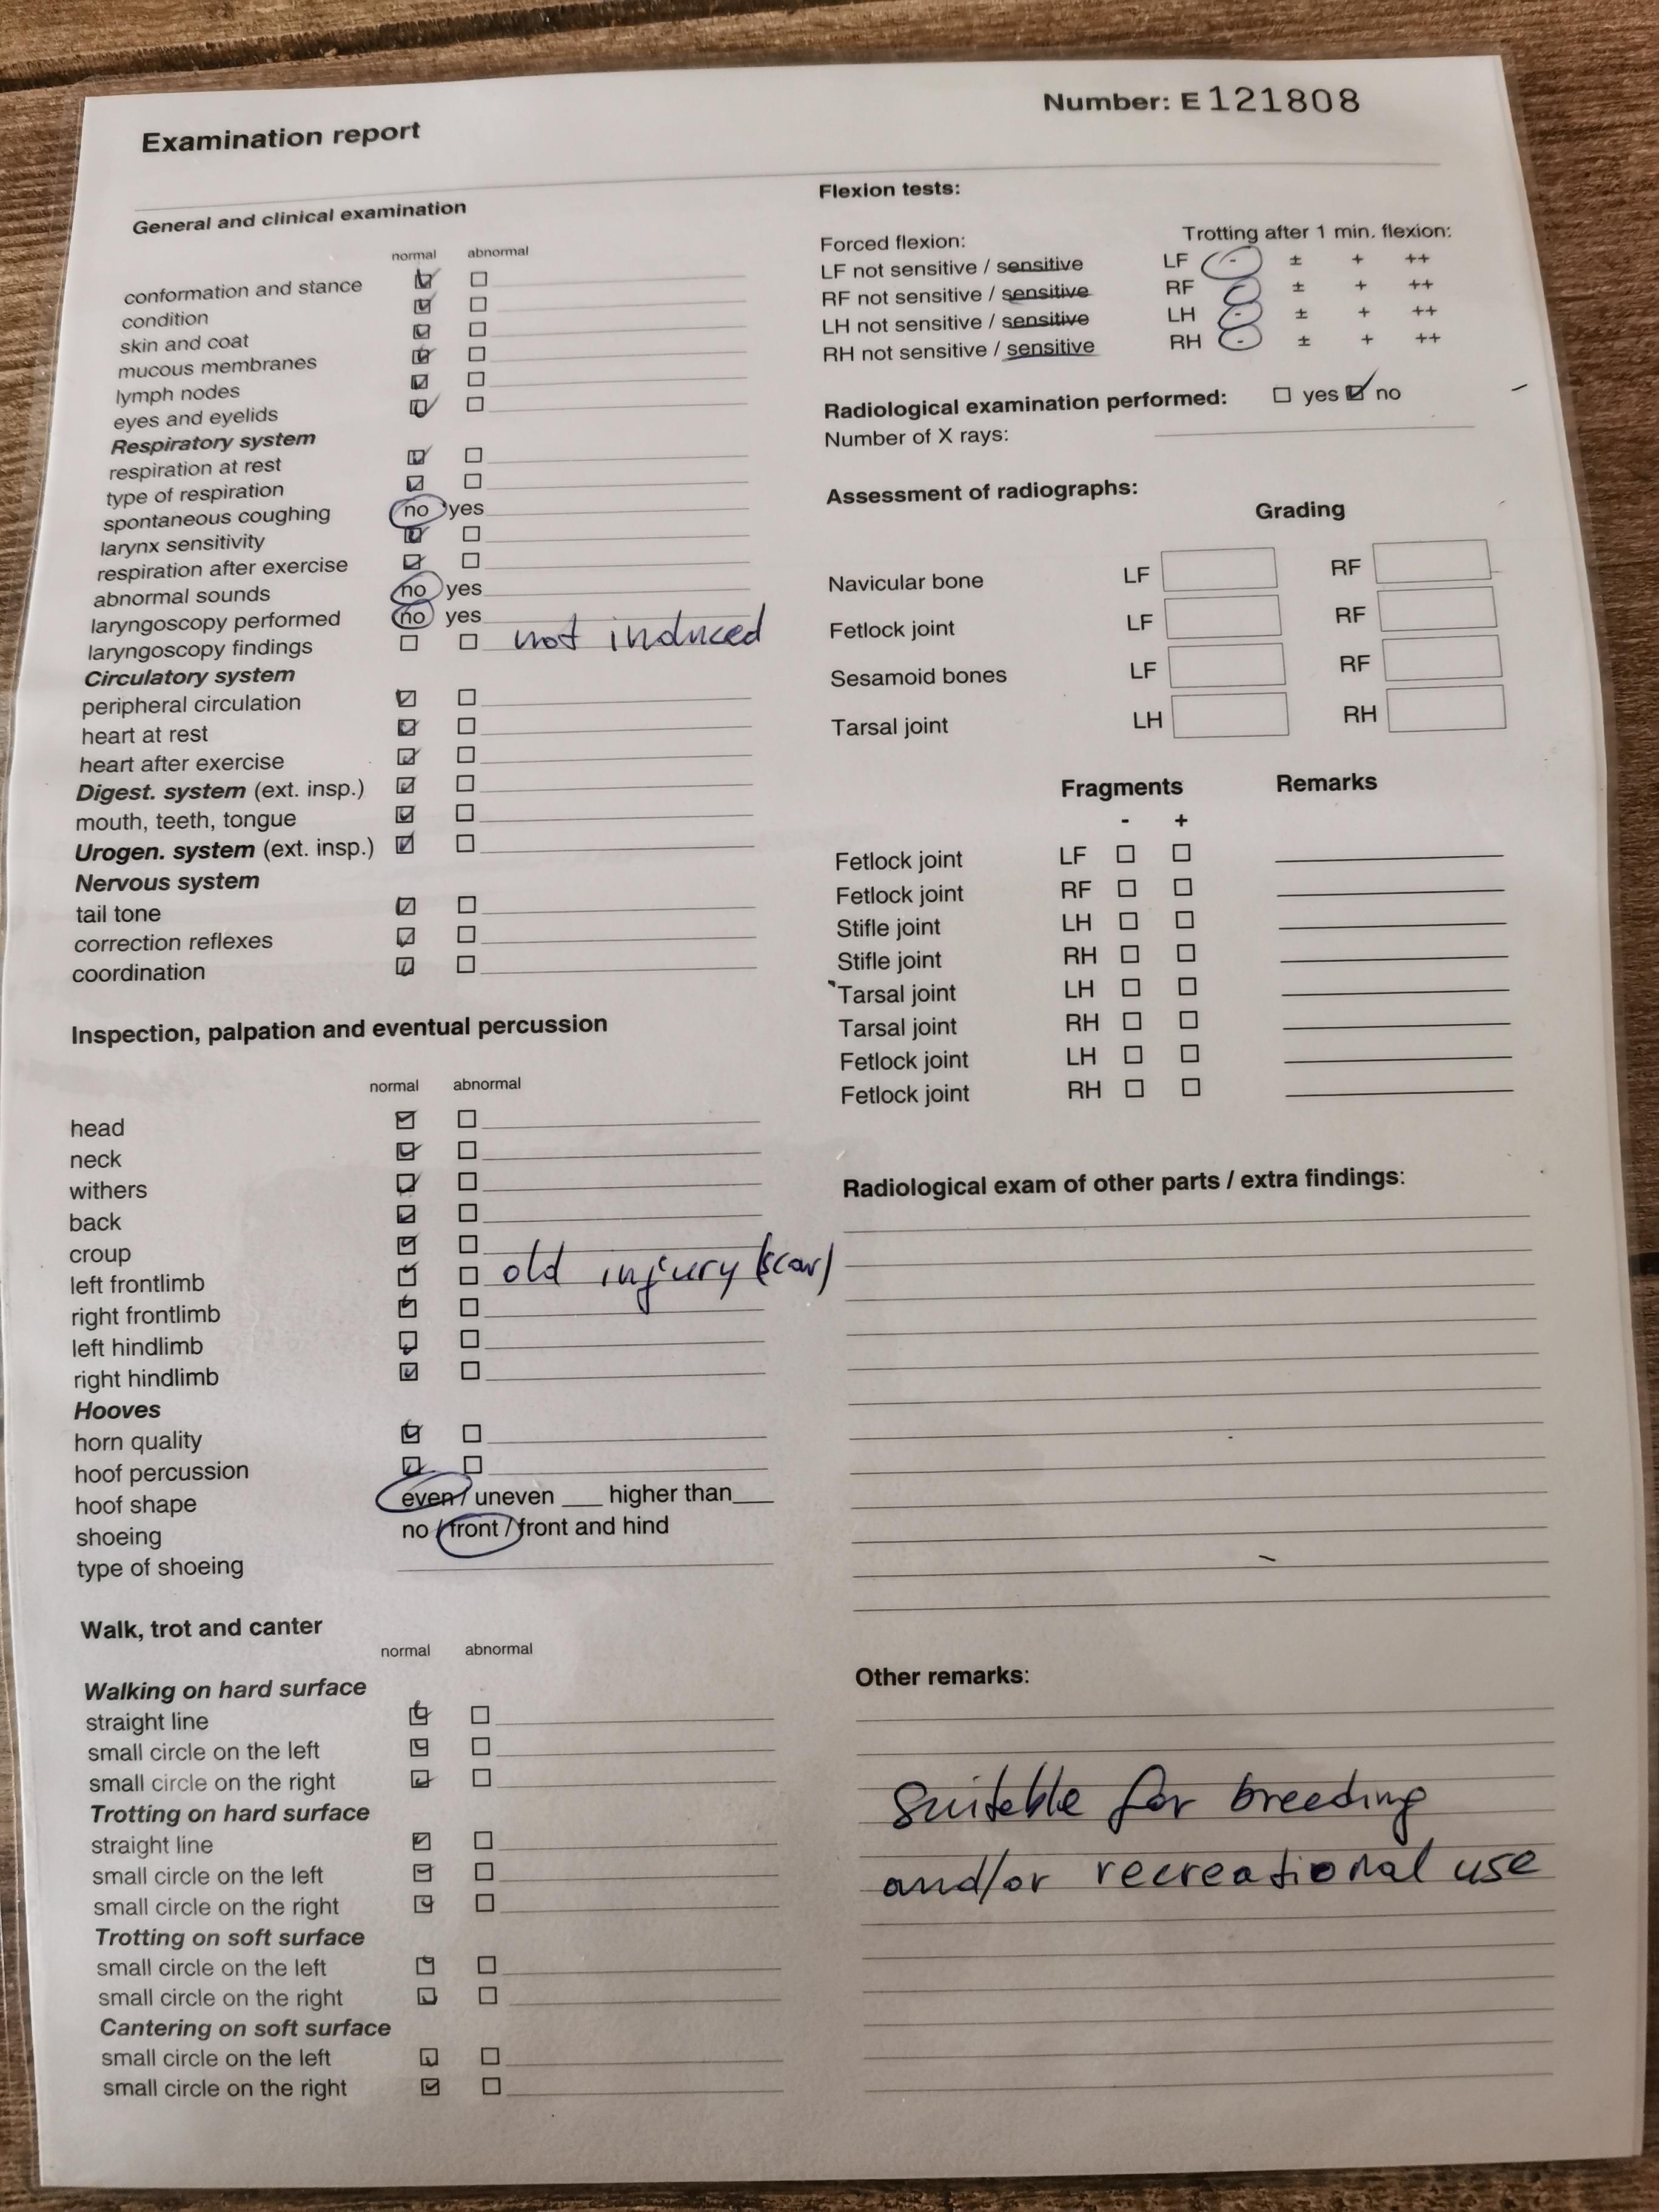 Number: E 121808
Examination report
General and clinical examination
normal abnormal
conformation and stance
condition
skin and coat
mucous membranes
lymph nodes
eyes and eyelids
Respiratory system
respiration at rest
type of respiration
spontaneous coughing no yes
larynx sensitivity
respiration after exercise
abnormal sounds no yes
laryngoscopy performed no yes
laryngoscopy findings not induced
Circulatory system
peripheral circulation
heart at rest
heart after exercise
Digest. system (ext. insp.)
mouth, teeth, tongue
Urogen. system (ext. insp.)
Nervous system
tail tone
correction reflexes
coordination
Inspection, palpation and eventual percussion
normal abnormal
head
neck
withers
back
croup
left frontlimb old injury (scar)
right frontlimb
left hindlimb
right hindlimb
Hooves
horn quality
hoof percussion
hoof shape even / uneven ___ higher than ___
shoeing no / front / front and hind
type of shoeing
Walk, trot and canter
normal abnormal
Walking on hard surface
straight line
small circle on the left
small circle on the right
Trotting on hard surface
straight line
small circle on the left
small circle on the right
Trotting on soft surface
small circle on the left
small circle on the right
Cantering on soft surface
small circle on the left
small circle on the right
Flexion tests:
Forced flexion: Trotting after 1 min. flexion:
LF not sensitive / sensitive LF - ± + ++
RF not sensitive / sensitive RF - ± + ++
LH not sensitive / sensitive LH - ± + ++
RH not sensitive / sensitive RH - ± + ++
Radiological examination performed: yes no
Number of X rays:
Assessment of radiographs:
Grading
Navicular bone LF RF
Fetlock joint LF RF
Sesamoid bones LF RF
Tarsal joint LH RH
Fragments Remarks
- +
Fetlock joint LF
Fetlock joint RF
Stifle joint LH
Stifle joint RH
Tarsal joint LH
Tarsal joint RH
Fetlock joint LH
Fetlock joint RH
Radiological exam of other parts / extra findings:
Other remarks:
Suiteble for breeding
and/or recreational use